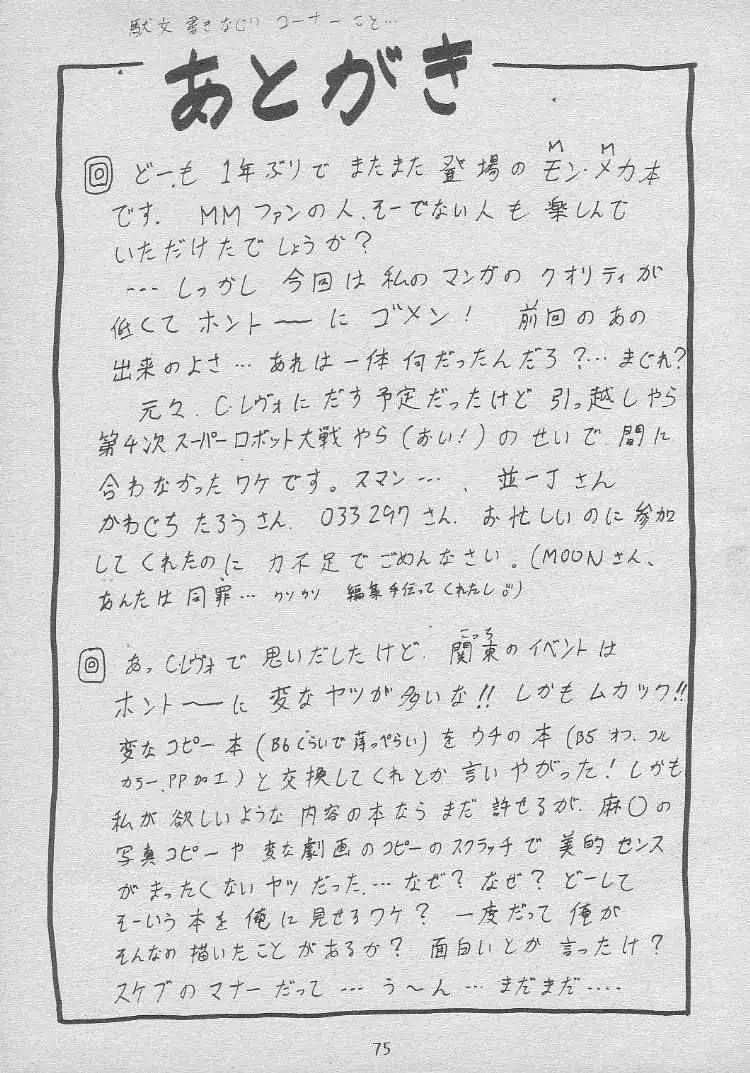 駄文 書きなじり コーナー こと…
あとがき
どーも 1年ぶりで またまた 登場の モン・メカ本
M M
です. MMファンの人、そーでない人も 楽しんで
いただけたでしょうか?
… しっかし 今回は 私の マンガの クオリティが
低くて ホントーーに ゴメン! 前回のあの
出来のよさ… あれは一体 何だったんだろ?… まぐれ?
元々、C・レヴォに だす予定だったけど 引っ越しやら
第4次 スーパーロボット大戦 やら (おい!) のせいで 間に
合わなかったワケです。スマン…、並一丁さん
かわぐち たろうさん、033297さん、お忙しいのに 参加
してくれたのに 力不足で ごめんなさい。(MOONさん、
あんたは 同罪… クソクソ 編集手伝ってくれたし♂)
あっ C・レヴォで 思いだしたけど、関東のイベントは
こっち
ホントーーに 変な ヤツが 多いな!! しかも ムカック!!
変な コピー本 (B6くらいで 薄っぺらい) を ウチの 本 (B5 オフ、フル
カラー、PP加工) と 交換してくれ とか 言いやがった! しかも
私が 欲しいような 内容の本なら まだ 許せるが、麻〇の
写真 コピー や 変な劇画の コピーの スクラッチで 美的 センス
が まったくない ヤツ だった… なぜ? なぜ? どーして
そーいう 本を 俺に 見せるワケ? 一度だって 俺が
そんなの 描いたこと があるか? 面白いとか 言ったけ?
スケブの マナー だって … う〜ん … まだまだ ….
75